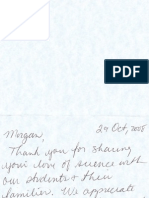 Morgan, 29 Oct, 2008
Thank you for sharing
your love of science with
our students & their
families. We appreciate